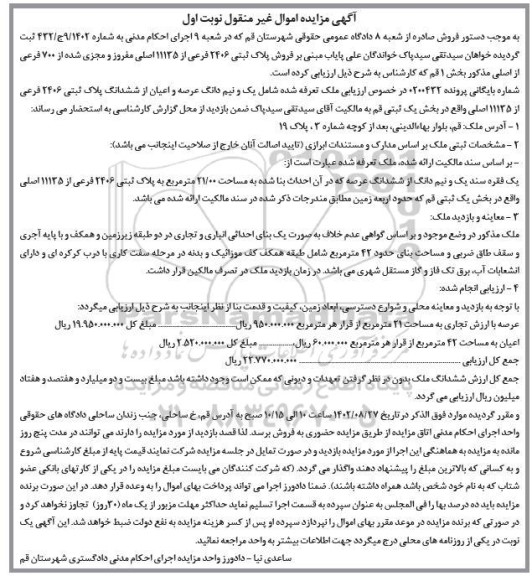 آگهی مزایده اموال غیر منقول نوبت اول
به موجب دستور فروش صادره از شعبه ۸ دادگاه عمومی حقوقی شهرستان قم که در شعبه ۹ اجرای احکام مدنی به شماره ۹/۱۴۰۲ج/۴۳۲ ثبت
گردیده خواهان سیدتقی سیدپاک خواندگان علی پایاب مبنی بر فروش پلاک ثبتی ۲۴۰۶ فرعی از ۱۱۱۳۵ اصلی مفروز و مجزی شده از ۷۰۰ فرعی
از اصلی مذکور بخش ۱ قم که کارشناس به شرح ذیل ارزیابی کرده است.
شماره بایگانی پرونده ۰۲۰۰۴۳۲ در خصوص ارزیابی ملک تعرفه شده شامل یک و نیم دانگ عرصه و اعیان از ششدانگ پلاک ثبتی ۲۴۰۶ فرعی
از ۱۱۱۳۵ اصلی واقع در بخش یک ثبتی قم به مالکیت آقای سیدتقی سیدپاک ضمن بازدید از محل گزارش کارشناسی به استحضار می رساند:
۱ - آدرس ملک: قم، بلوار بهاءالدینی، بعد از کوچه شماره ۳ ، پلاک ۱۹
۲ - مشخصات ثبتی ملک بر اساس مدارک و مستندات ابرازی (تایید اصالت آنان خارج از صلاحیت اینجانب می باشد):
- بر اساس سند مالکیت ارائه شده، ملک تعرفه شده عبارت است از:
یک فقره سند یک و نیم دانگ از ششدانگ عرصه که در آن احداث بنا شده به مساحت ۲۱/۰۰ مترمربع به پلاک ثبتی ۲۴۰۶ فرعی از ۱۱۱۳۵ اصلی
واقع در بخش یک ثبتی قم که حدود اربعه زمین مطابق مندرجات ذکر شده در سند مالکیت ارائه شده می باشد.
۳ - معاینه و بازدید ملک:
ملک مذکور در وضع موجود و بر اساس گواهی عدم خلاف به صورت یک بنای احداثی انباری و تجاری در دو طبقه زیرزمین و همکف و با پایه آجری
و سقف طاق ضربی و مساحت بنای حدود ۴۲ مترمربع شامل طبقه همکف کف موزائیک و بدنه در مرحله سفت کاری با درب کرکره ای و دارای
انشعابات آب، برق تک فاز و گاز مستقل شهری می باشد. در زمان بازدید ملک در تصرف مالکین قرار داشت.
۴ - ارزیابی انجام شده:
با توجه به بازدید و معاینه محلی و شوارع دسترسی، ابعاد زمین، کیفیت و قدمت بنا از نظر اینجانب به شرح ذیل ارزیابی میگردد:
عرصه با ارزش تجاری به مساحت ۲۱ مترمربع از قرار هر مترمربع ۹۵۰.۰۰۰.۰۰۰ ریال ........ مبلغ کل ۱۹.۹۵۰.۰۰۰.۰۰۰ ریال
اعیان به مساحت ۴۲ مترمربع از قرار هر مترمربع ۶۰.۰۰۰.۰۰۰ ریال ........ مبلغ کل ۲.۵۲۰.۰۰۰.۰۰۰ ریال
جمع کل ارزیابی ........ ۲۲.۷۷۰.۰۰۰.۰۰۰ ریال
جمع کل ارزش ششدانگ ملک بدون در نظر گرفتن تعهدات و دیونی که ممکن است وجود داشته باشد مبلغ بیست و دو میلیارد و هفتصد و هفتاد
میلیون ریال ارزیابی می گردد.
و مقرر گردیده موارد فوق الذکر در تاریخ ۱۴۰۲/۰۸/۲۷ ساعت ۱۰ الی ۱۰/۱۵ صبح به آدرس قم، خ ساحلی، جنب زندان ساحلی دادگاه های حقوقی
واحد اجرای احکام مدنی اتاق مزایده از طریق مزایده حضوری به فروش برسد. لذا قصد بازدید از مورد مزایده را دارند می توانند در مدت پنج روز
مانده به مزایده به هماهنگی این اجرا از مورد مزایده بازدید و در صورت تمایل در جلسه مزایده شرکت نمایند، قیمت پایه از مبلغ کارشناسی شروع
و به کسانی که بالاترین مبلغ را پیشنهاد دهند واگذار می گردد. (که شرکت کنندگان می بایست مبلغ مزایده را در یکی از کارتهای بانکی عضو
شتاب که به نام خود شخص باشد همراه داشته باشند). ضمنا دادورز اجرا می تواند پرداخت بهای اموال را به وعده قرار دهد. در این صورت برنده
مزایده باید ده درصد بها را فی المجلس به عنوان سپرده به قسمت اجرا تسلیم نماید حداکثر مهلت مزبور از یک ماه (۳۰روز) تجاوز نخواهد کرد و
در صورتی که برنده مزایده در موعد مقرر بهای اموال را نپردازد سپرده او پس از کسر هزینه مزایده به نفع دولت ضبط خواهد شد. این آگهی یک
نوبت در یکی از روزنامه های محلی درج میگردد جهت اطلاعات بیشتر به واحد مراجعه نمائید.
ساعدی نیا - دادورز واحد مزایده اجرای احکام مدنی دادگستری شهرستان قم